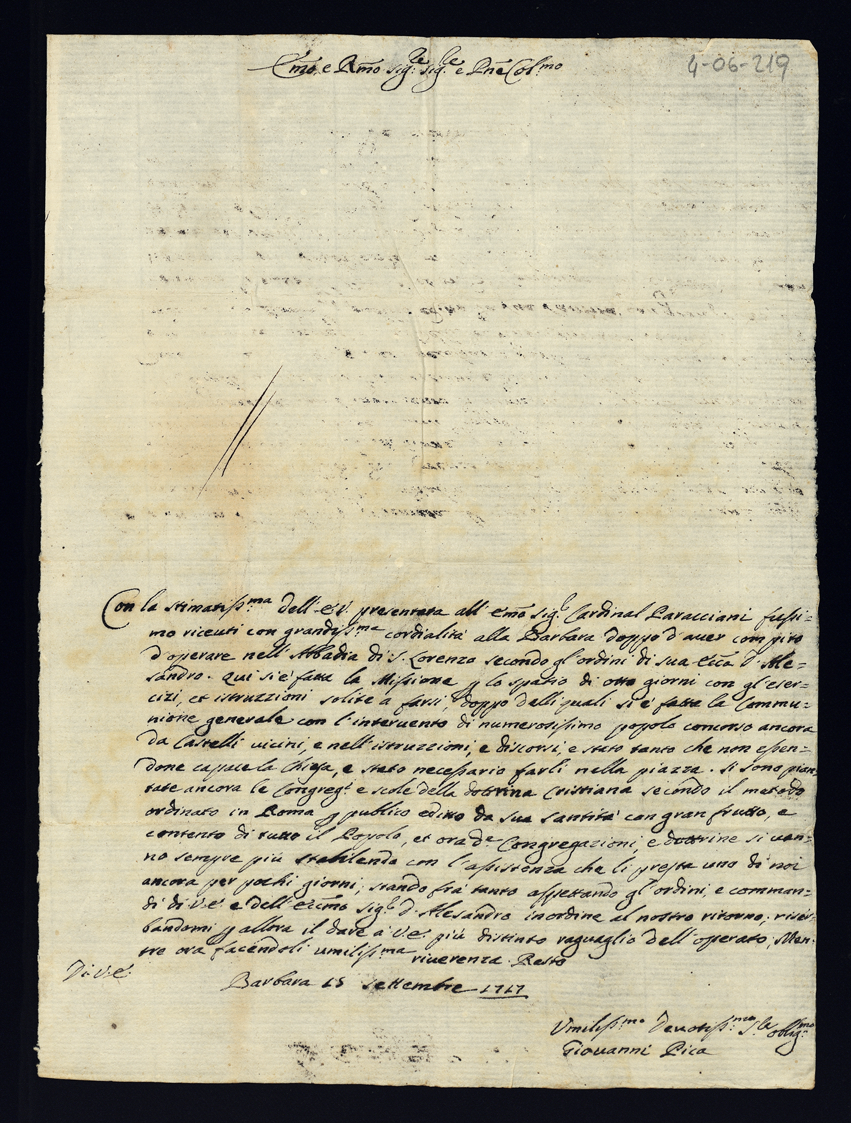 4-06-219
Em̃o, e Rm̃o Sig.re Sig.re e Pr̃ne Col.mo
Con la stimatiss.ma dell'E.V. presentata all'Em̃o Sig.r Cardinal Paracciani fussi=
mo riceuti con grandiss.ma cordialità alla Barbara doppo d'auer compito
d'operare nell'Abbadia di S. Lorenzo secondo gl'ordini di sua Ecc.a D. Ale=
sandro. Qui si è fatta la Missione p lo spatio di otto giorni con gl'eser=
cizi, et istruzzioni solite a farsi, doppo delli quali si è fatta la Commu=
nione generale con l'interuento di numerosissimo popolo concorso ancora
da Castelli uicini, e nell'istruzzioni, e discorsi, e stato tanto che non essen=
done capace la Chiesa, e stato necessario farli nella piazza. Si sono pian
tate ancora le Congreg.i e scole della dottrina Cristiana secondo il metodo
ordinato in Roma p publico editto da sua Santità con gran frutto, e
contento di tutto il Popolo, et ora d.e Congregazioni, e dottrine si uan=
no sempre più stabilendo con l'assistenza che li presta uno di noi
ancora per pochi giorni, stando frà tanto aspettando gl'ordini, e comman=
di di V.E. e dell'Ecc̃mo Sig.r D. Alesandro in ordine al nostro ritorno; riser=
bandomi p allora il dare à V.E. più distinto raguaglio dell'operato; Men=
tre ora facendoli umiliss.ma riuerenza Resto
Di V.E.
Barbara 15 Settembre 1717
Umiliss.mo Deuotiss.mo S.re oblig.mo
Giouanni Pica